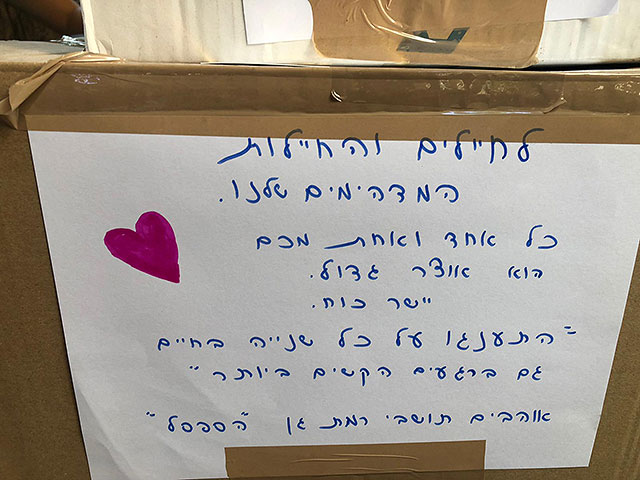 לחיילים והחיילות
המדהימים שלנו.
כל אחד ואחת מכם
הוא אוצר גדול.
יישר כוח.
"התענגו על כל שנייה בחיים
גם ברגעים הקשים ביותר"
אוהבים תושבי רמת גן "הספסל"